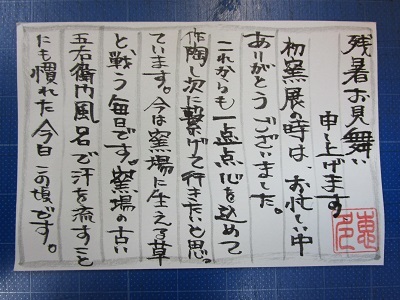 残暑お見舞い
申し上げます
初窯展の時は、お忙しい中
ありがとうございました。
これからも一点一点心を込めて
作陶し次に繋げて行きたいと思っ
ています。今は窯場に生える草
と、戦う毎日です。窯場の古い
五右衛門風呂で汗を流すこと
にも慣れた今日この頃です。